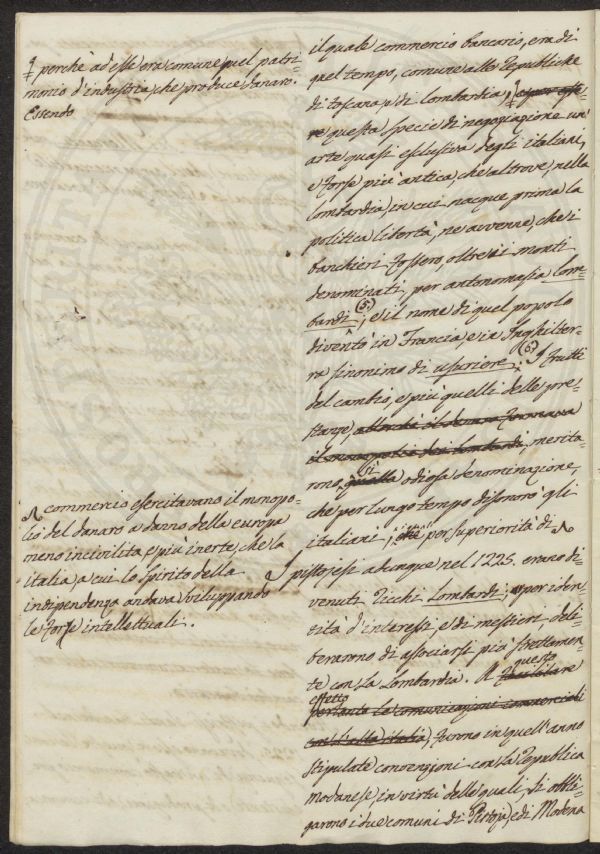 ǂ perchè ad esse era comune quel patri-
monio d'industria, che produce danaro.
Essendo
il quale commercio bancario, era di
quel tempo, comune alle Repubbliche
di toscana, e di Lombardia, ǂ
questa specie di negoziazione un'
arte quasi esclusiva degli italiani,
e forse più antica, che altrove, nella
lombardia, in cui nacque prima la
politica libertà, ne avvenne, che i
banchieri fossero, oltre ai monti
denominati per antonomasia lom-
bardi (5.), e il nome di quel popolo
diventò in Francia e in Inghilter-
ra sinonimo di usuriere (6.). I frutti
del cambio, e più quelli delle pre-
stanze, allorchè il denaro formava
il monopolio dei lombardi, merita-
rono si odiosa denominazione,
che per lungo tempo disonorò gli
italiani, che per superiorità di
commercio esercitavano il monopo-
lio del danaro a danno della europa
meno incivilita, e più inerte, che la
italia, a cui lo spirito della
indipendenza andava sviluppando
le forze intellettuali.
I pistojesi adunque nel 1225. erano di-
venuti ricchi Lombardi; per iden-
tità d'interessi, e di mestieri deli-
berarono di associarsi più strettamen-
te con la Lombardia. A questo
effetto
pertanto le comunicazioni commerciali
con l'alta italia, furono in quell'anno
stipulate convenzioni con la Repubblica
modanese, in virtù delle quali si obbli-
garono i due comuni di Pistoja, e di Modena